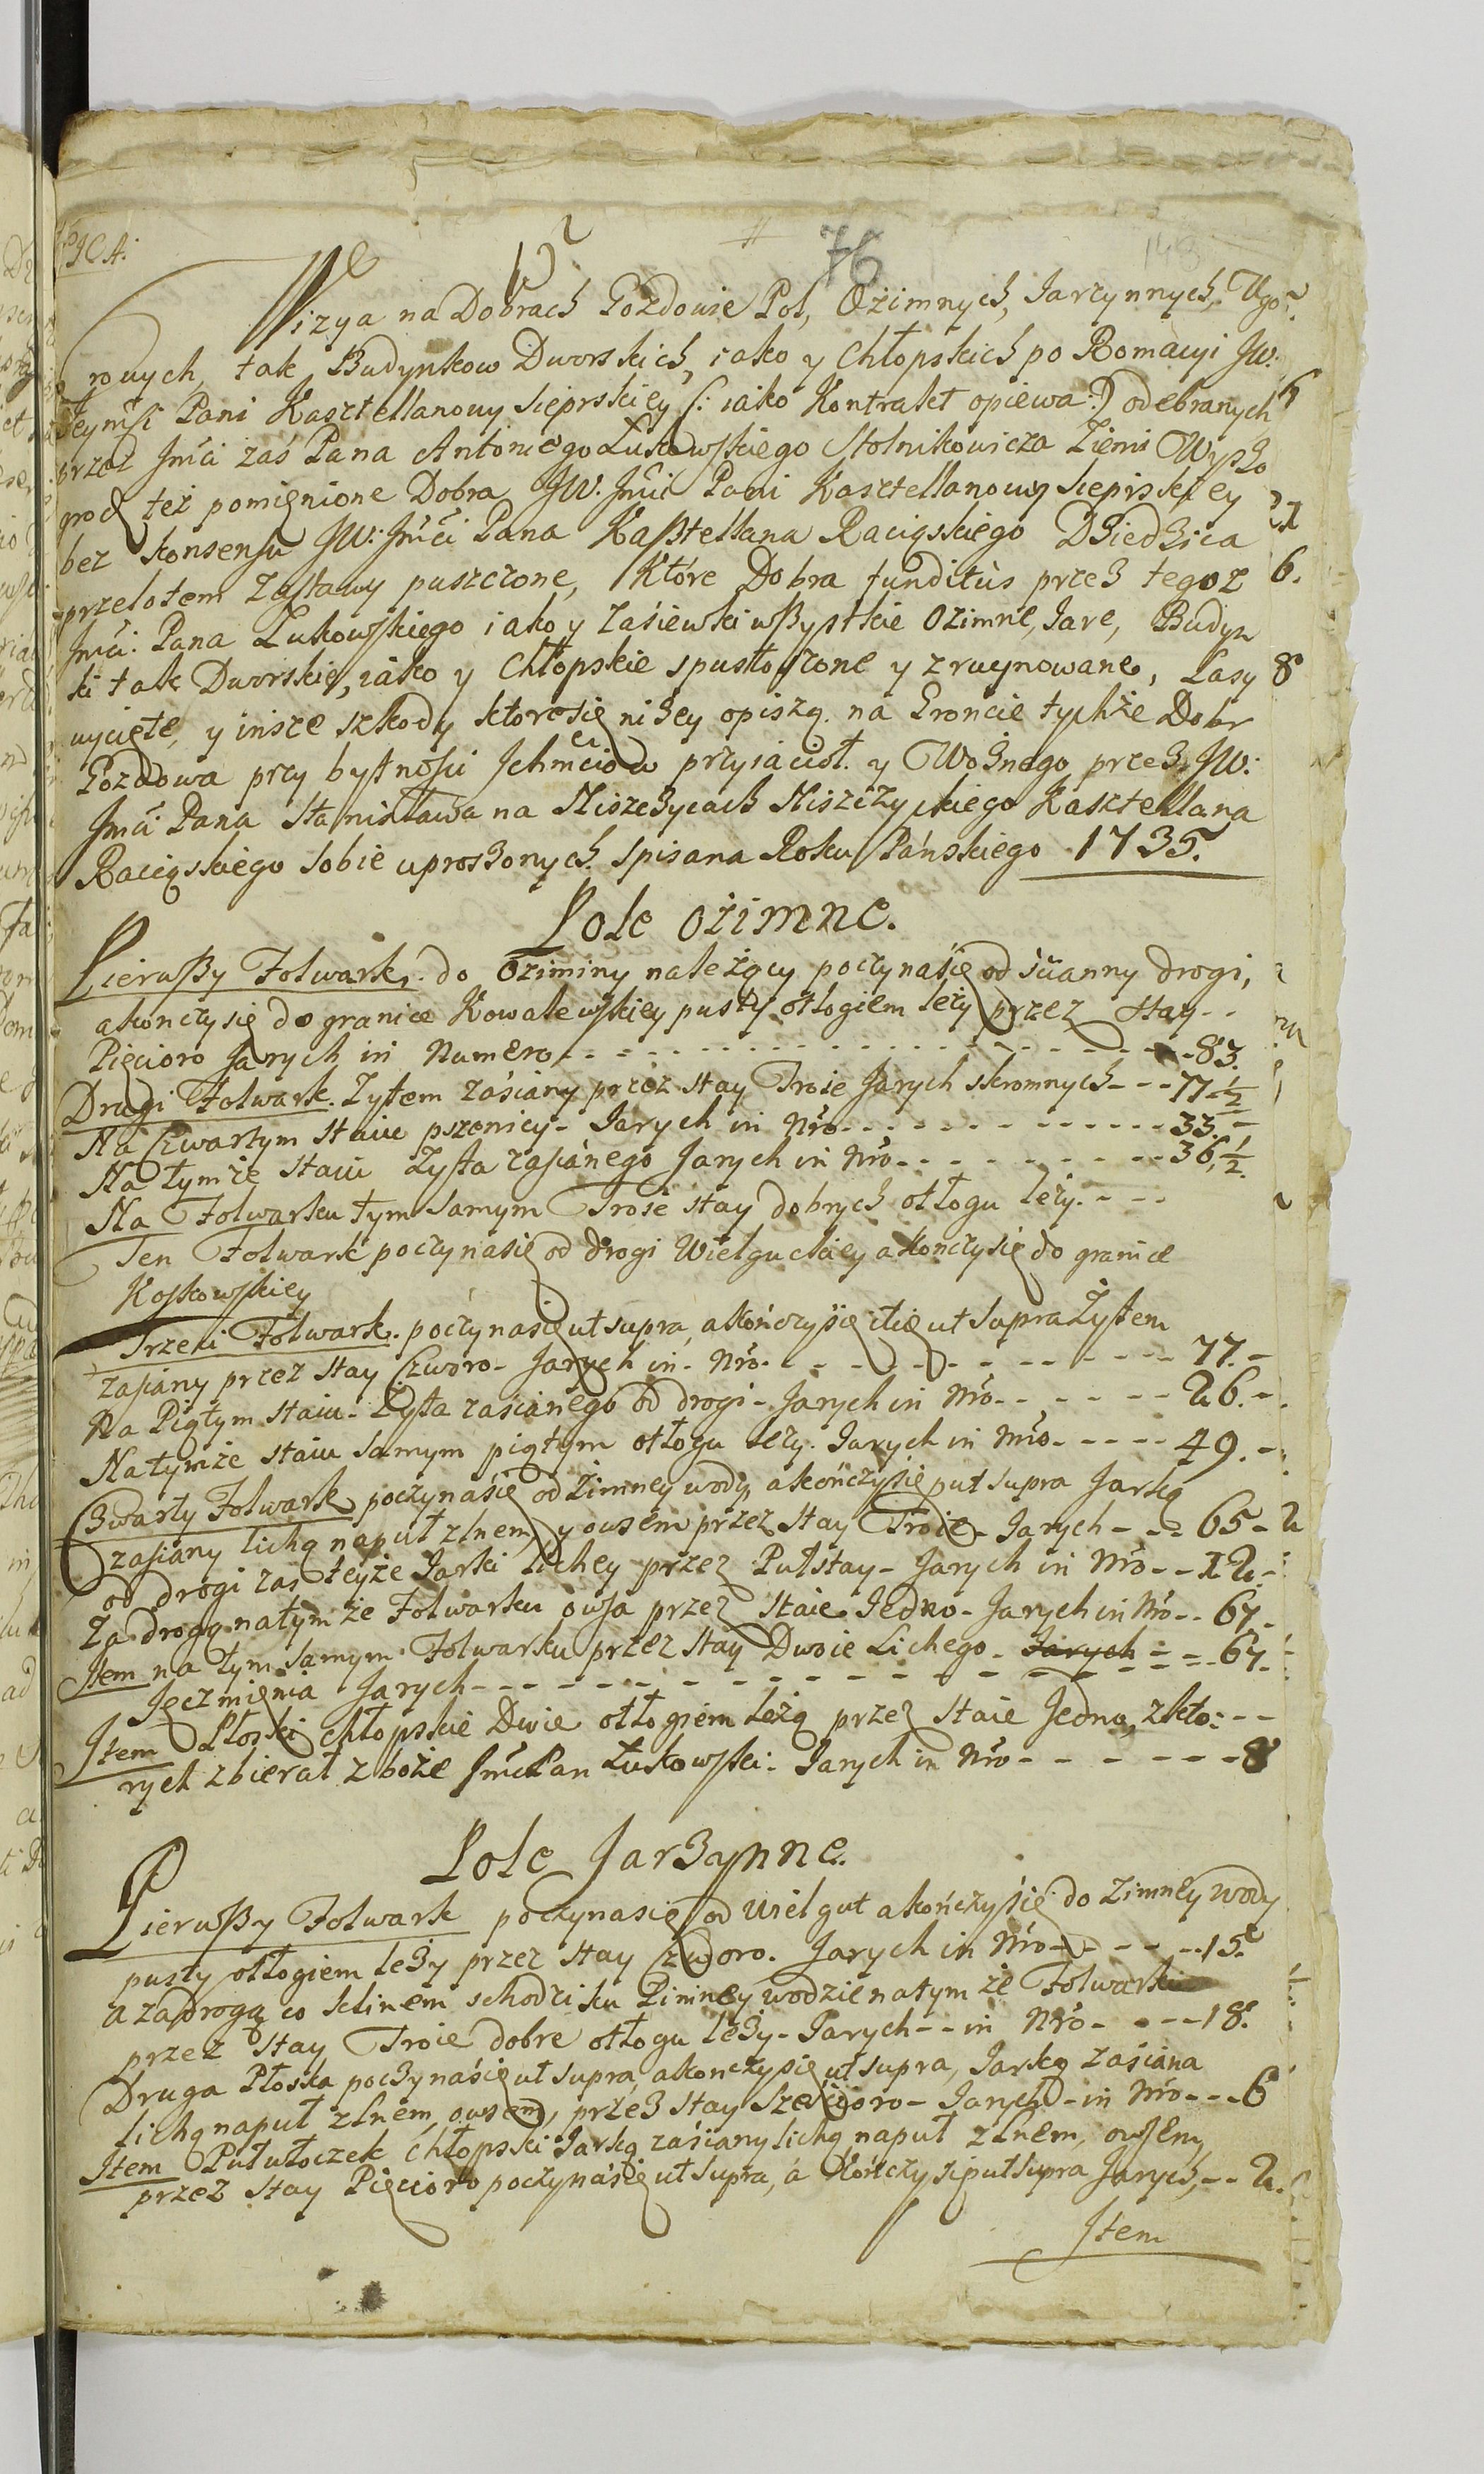 76
148
Wizya na Dobrach Gozdowie Pol, Ozimnych, Jarzynnych, Ugo-
rowych, tak Budynkow Dworskich, iako y Chłopskich po Romacyi JW.
Jeymści Pani Kasztellanowy Sieprskiey (: iako Kontrakt opiewa :) odebranych
przez Jmći zaś Pana Antoniego Łukowskiego Stolnikowicza Ziemi Wyszo
grod też pomięnione Dobra JW. Jmći Pani Kasztellanowy Sieprskiey
bez konsensu JW: Jmći Pana Kasztellana Raciąskiego Dziedzica
przelotem Zastawy puszczone, Które Dobra funditùs przez tegoz
Jmći: Pana Łukowskiego iako y zasiewki wszystkie Ozimne, Jare, Budyn
ki tak Dworskie, iako y Chłopskie spustoszone y zruynowane, Lasy
wycięte, y insze szkody ktore się niżey opiszą. na Gróncie tychże Dobr
Gozdowa przy bytności Jchmćiow przyiacioł. y Woźnego przez JW:
Jmći Pana Stanisława na Niszczycach Niszczyckiego Kasztellana
Raciąskiego sobie uproszonych. Spisana Roku Pańskiego 1735.
Pole ozimne.
Pierwszy Folwark. do Oziminy należący poczyna się od ścianny drogi,
a konczy się do granice Kowalewskiey pusty otłogiem leży przez stay - -
Pięcioro Jarych in Numero - - - 83.
Drugi Folwark. Żytem zasiany przez stay Troie Jarych skromnych - - - 77 1/2
Na Czwartym staiu pszenicy - Jarych in Nro - - - 33. -
Na tymże staiu Zyta zasianego Jarych in Nro - - - 36 1/2.
Na Folwarku tym samym Troie stay dobrych otłogu leży. - - -
Ten Folwark poczyna się od drogi Wielguckiey a konczy się do granice
Koskowskiey
Trzeci Folwark. poczyna się ut supra, a kończy się itię ut supra Żytem
zasiany przez stay Czworo - Jarych in - Nro - - - 77. -
Na Piątym staiu - Żyta zasianego od drogi - Jarych in Nro - - - 26. -
Na tymże staiu samym piątym otłogu leży. Jarych in Nro - - - 49. -
Czwarty Folwark poczyna się od Zimney wody a kończy się put supra Jarką
zasiany lichą naput z lnem, y owsem przez stay Troie - Jarych - - - 65 -
od drogi zas teyże Jarki lichey przez Puł stay - Jarych in Nro - - 12 -
Za drogą na tym że Folwarku owsa przez staie Jedno - Jarych in Nro - - 67 -
Item na tym samym Folwarku przez stay Dwoie Lichego - Jarych - - - 67. -
Jęczmięnia Jarych - - -
Item Płoski chłopskie Dwie otłogiem leżą przez staie Jedno, z kto: - -
rych zbierał zboże Jmć Pan Łukowski: Jarych in Nro - - - 8
Pole Jarzynne.
Pierwszy Folwark poczyna się od Wielgut a kończy się do Zimney wody
pusty otłogiem leży przez stay Czworo. Jarych in Nro - - - 15.
a za drogą co klinem schodzi ku Zimney wodzie na tym że Folwarku
przez stay Troie dobre otłogu leży - Jarych - - in Nro - - - 18.
Druga Płoska poczyna się ut supra, a konczy się ut supra, Jarką zasiana
lichą naput z lnem, owsem, przez stay Sześcioro - Jarych - in Nro - - - 6
Item Pułwłoczek chłopski Jarką zasiany lichą naput z lnem, owsem,
przez stay Pięcioro poczyna się ut supra, á Kończy się put supra Jarych, - - 2.
Item